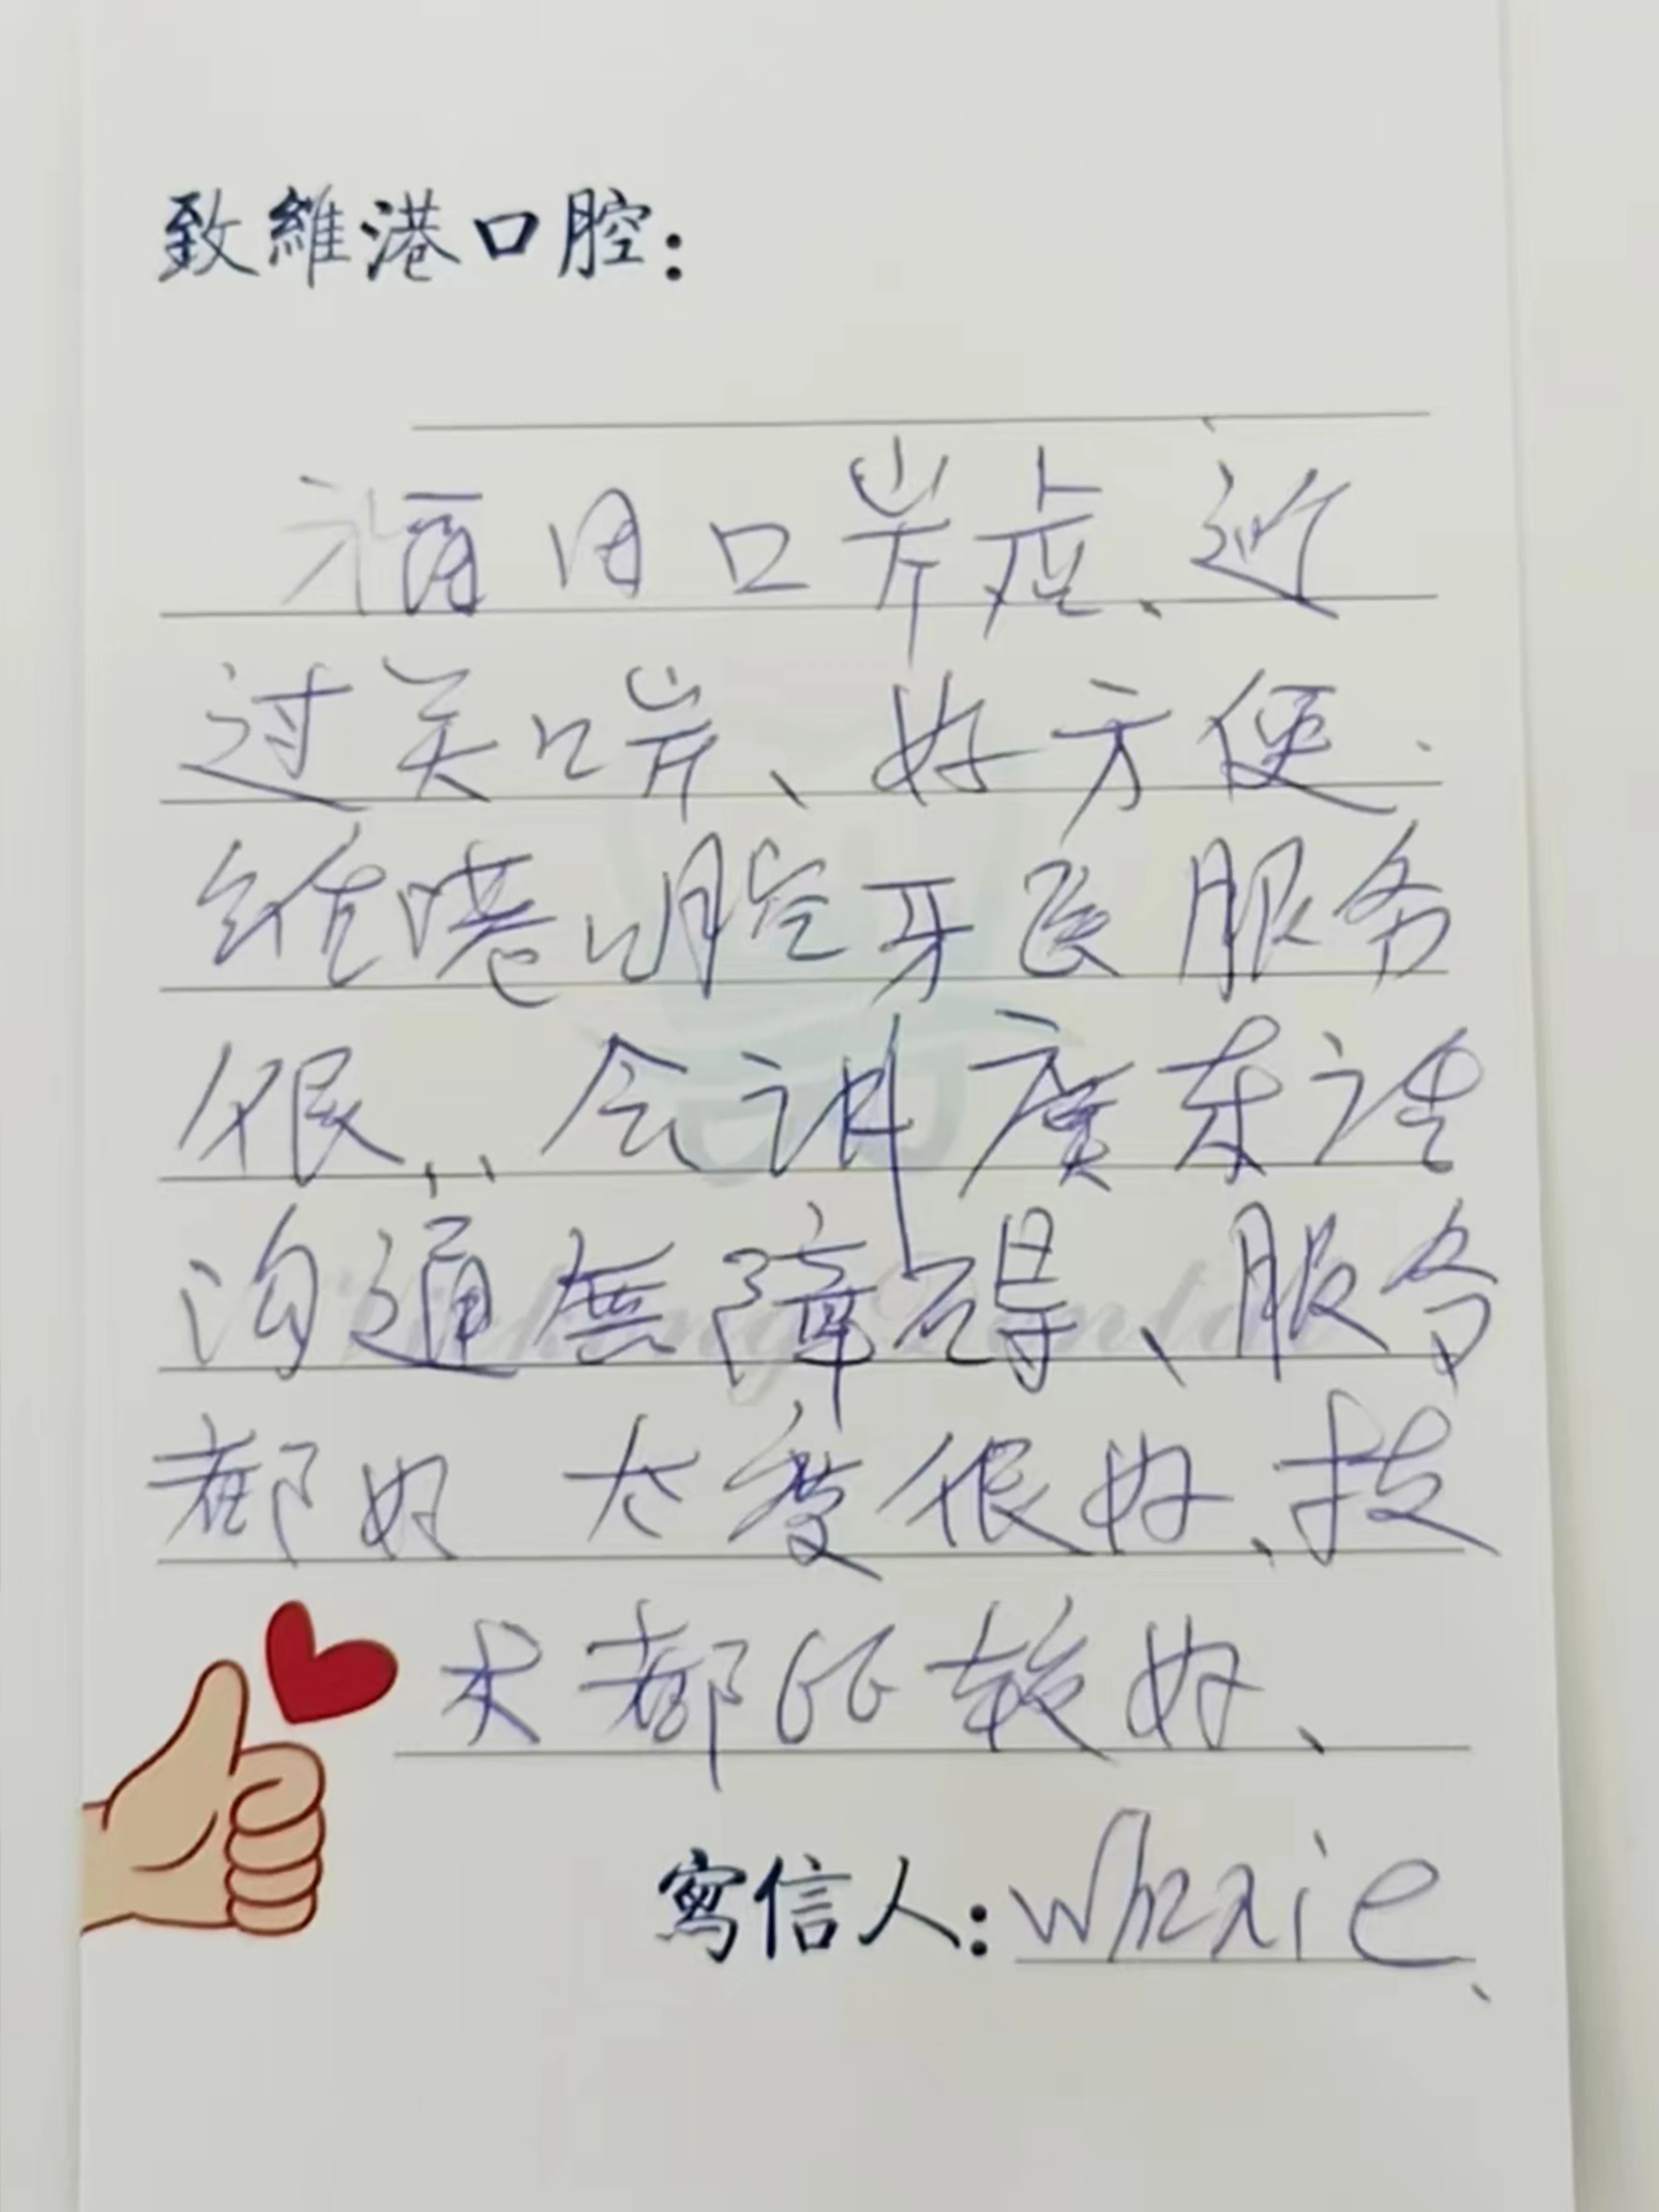 致維港口腔：
福田口岸店、近
过关口岸、好方便.
维港口腔牙医服务
很、会讲廣东话
沟通無障碍、服务
都好 太度很好、技
术都比较好、
寫信人：